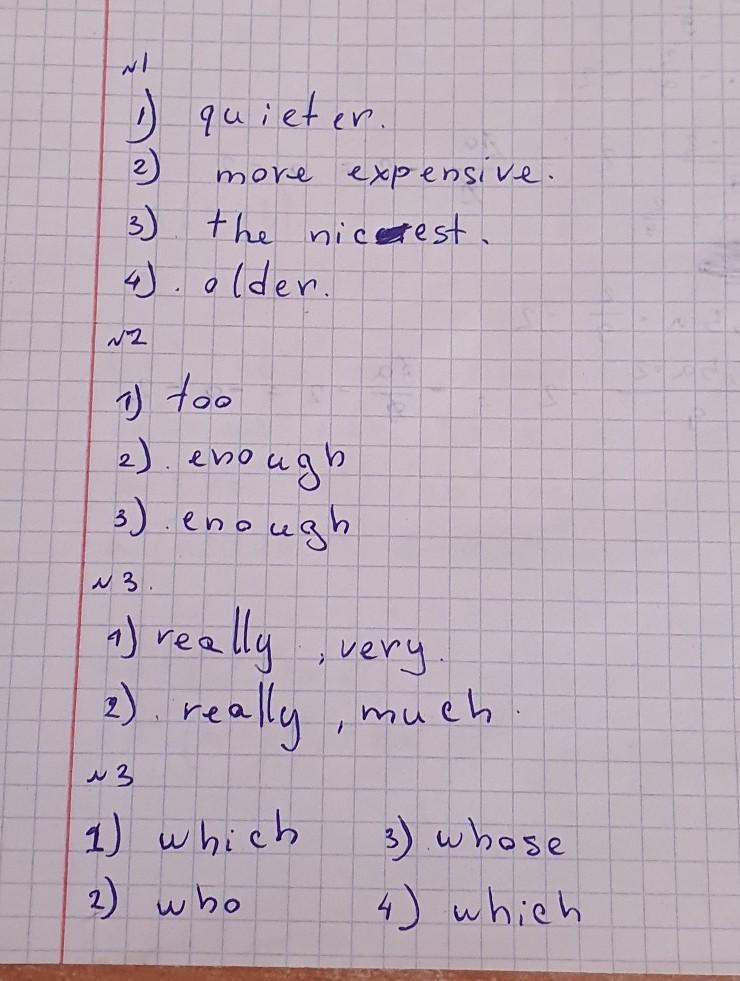 №1
1) quieter.
2) more expensive.
3) the nicest.
4). older.
№2
1) too
2). enough
3). enough
№3.
1) really, very.
2). really, much.
№3
1) which 3) whose
2) who 4) which